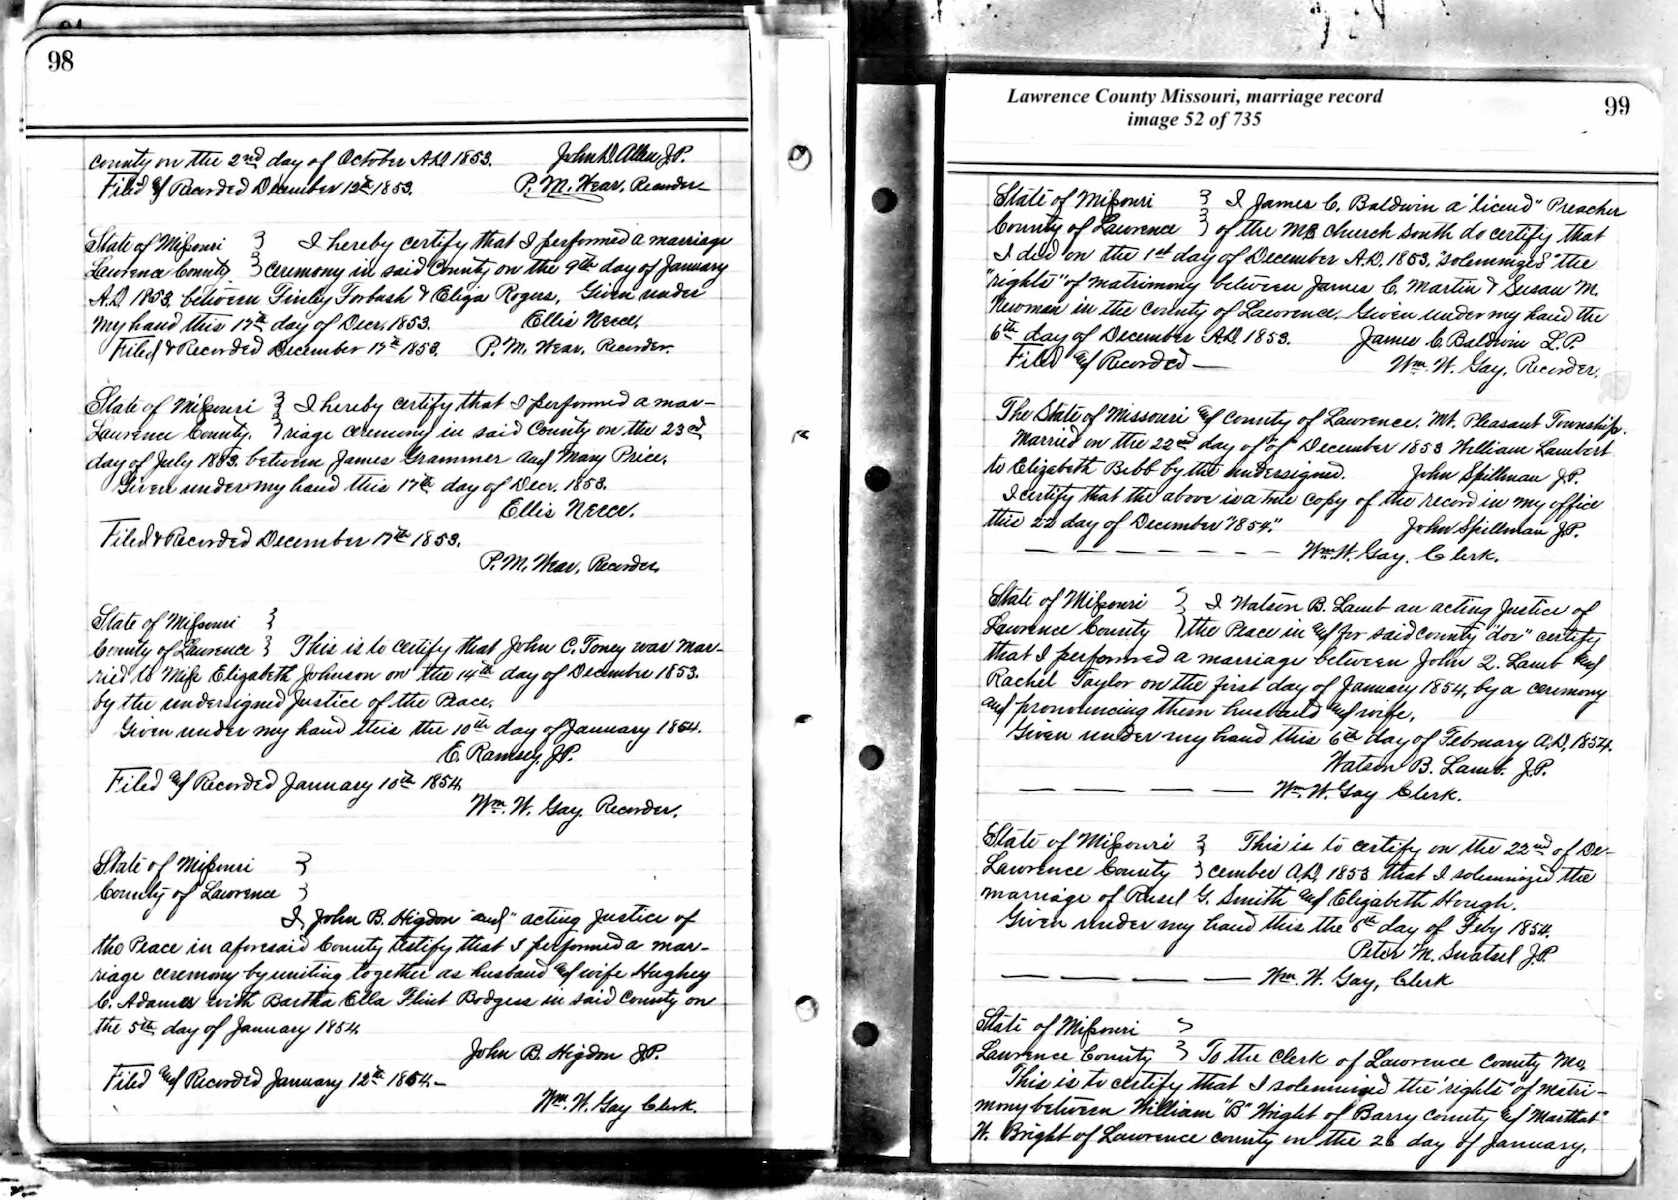 98
county on the 2nd day of October A.D. 1853. John D. Allen J.P.
Filed & Recorded December 12th 1853. P. M. Wear, Recorder
State of Missouri } I hereby certify that I performed a marriage
Lawrence County } ceremony in said County on the 9th day of January
A.D. 1853. between Finley Forbush & Eliza Rogers. Given under
my hand this 17th day of Decr. 1853. Ellis Neece.
Filed & Recorded December 17th 1853. P. M. Wear, Recorder.
State of Missouri } I hereby certify that I performed a mar-
Lawrence County. } riage ceremony in said County on the 23rd
day of July 1853. between James Grammer and Mary Price.
Given under my hand this 17th day of Decr. 1853.
Ellis Neece.
Filed & Recorded December 17th 1853.
P. M. Wear, Recorder.
State of Missouri }
County of Lawrence } This is to certify that John C. Toney was mar-
ried to Miss Elizabeth Johnson on the 14th day of Decembre 1853.
by the undersigned Justice of the Peace.
Given under my hand this the 10th day of January 1854.
E. Ramsey, J.P.
Filed & Recorded January 10th 1854.
Wm. W. Gay. Recorder.
State of Missouri }
County of Lawrence }
I, John B. Higdon "and" acting Justice of
the Peace in aforesaid County testify that I performed a mar-
riage ceremony by uniting together as husband & wife Hughey
C. Adams with Bartha Ella Flint Bodgess in said County on
the 5th day of January 1854
John B. Higdon J.P.
Filed & Recorded January 12th 1854.-
Wm. W. Gay Clerk.
Lawrence County Missouri, marriage record
image 52 of 735
99
State of Missouri } I James C. Baldwin a "licend" Preacher
County of Lawrence } of the ME church south do certify that
I did on the 1st day of December A.D. 1853. "solemnized" the
"rights" of matrimony between James C. Martin & Susan M.
Newman in the County of Lawrence. Given under my hand the
6th day of December A.D. 1853. James C Baldwin L.P.
Filed & Recorded — Wm. W. Gay, Recorder.
The State of Missouri & County of Lawrence. Mt. Pleasant Township.
Married on the 22nd day of of December 1853 William Lambert
to Elizabeth Bebb by the undersigned. John Spillman J.P.
I certify that the above is a true copy of the record in my office
this 22 day of December "1854". John Spillman J.P.
— — — — — — — Wm. W. Gay. Clerk.
State of Missouri } I Watson B. Lamb an acting Justice of
Lawrence County } the Peace in & for said county "dos" certify
that I performed a marriage between John Q. Lamb and
Rachel Taylor on the first day of January 1854, by a ceremony
and pronouncing them husband & wife.
Given under my hand this 6th day of February A.D. 1854.
Watson B. Lamb. J.P.
— — — — Wm. W. Gay Clerk.
State of Missouri } This is to certify on the 22nd of De-
Lawrence County } cember A.D. 1853 that I solemnized the
marriage of Rusel G. Smith & Elizabeth Hough.
Given under my hand this the 6th day of Feby 1854.
Peter M. Suatsel J.P.
— — — — Wm. W. Gay, Clerk
State of Missouri }
Lawrence County } To the Clerk of Lawrence County Mo,
This is to certify that I solemnized the "rights" of matri-
mony between William "B" Wright of Barry County & "Marthat"
W. Bright of Lawrence county on the 26 day of January.